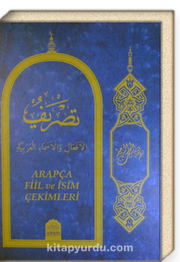 تصريف
الأفعال والأسماء العربية
ARAPÇA
FİİL ve İSİM
ÇEKİMLERİ
kitapyurdu.com